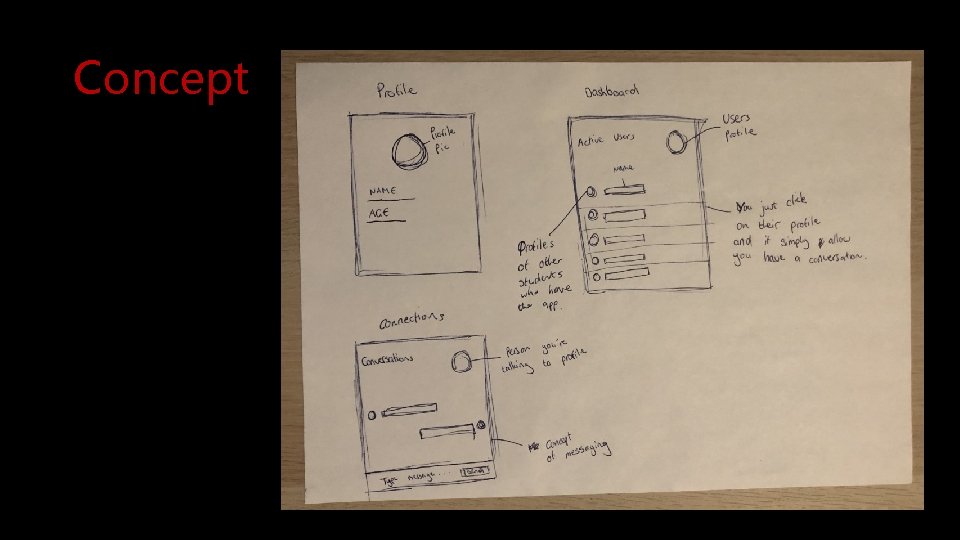 Concept
Profile
Profile
Pic
NAME
AGE
Dashboard
Active Users
Users
Profile
NAME
You just click
on their profile
and it simply allow
you have a conversation.
Profiles
of other
students
who have
the app.
Connections
Conversations
Person you're
talking to profile
Concept
of messaging
Type message....